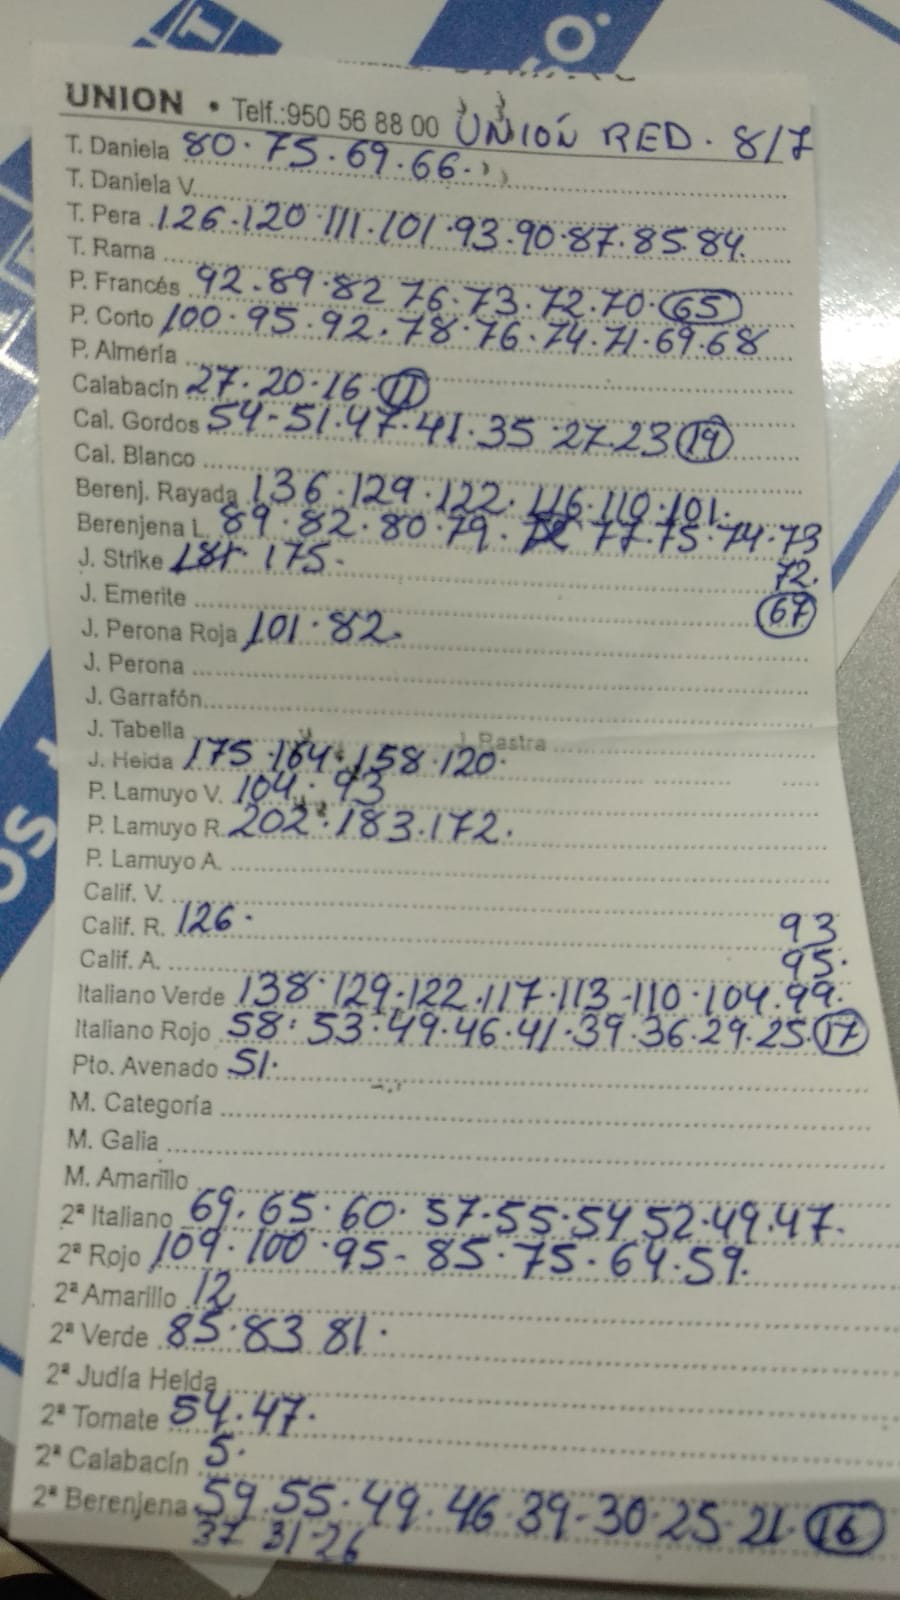 UNION • Telf.:950 56 88 00 UNIÓN RED. 8/7
T. Daniela 80.75.69.66.
T. Daniela V.
T. Pera 126.120.111.101.93.90.87.85.84.
T. Rama
P. Francés 92.89.82 76.73.72.70.65
P. Corto 100.95.92.78.76.74.71.69.68
P. Almería
Calabacín 27.20.16.11
Cal. Gordos 54-51.47.41.35 27.23 19
Cal. Blanco
Berenj. Rayada 136.129.122.116.110.101.
Berenjena L. 89.82.80.79. 77.75.74.73
72.
J. Strike 181. 175.
J. Emerite
67
J. Perona Roja 101.82.
J. Perona
J. Garrafón
J. Tabella J. Rastra
J. Helda 175.164.158.120.
P. Lamuyo V. 104.93
P. Lamuyo R. 202.183.172.
P. Lamuyo A.
Calif. V.
Calif. R. 126. 93
Calif. A. 95.
Italiano Verde 138.129.122.117.113-110.104.99.
Italiano Rojo 58.53.49.46.41.39.36.29.25.17
Pto. Avenado 51.
M. Categoría
M. Galia
M. Amarillo
2ª Italiano 69.65.60.57.55.54 52.49.47.
2ª Rojo 109.100.95-85.75.64.59.
2ª Amarillo 12
2ª Verde 85.83 81.
2ª Judía Helda
2ª Tomate 54.47.
2ª Calabacín 5.
2ª Berenjena 59.55.49.46.39-30.25.21.16
37 31-26